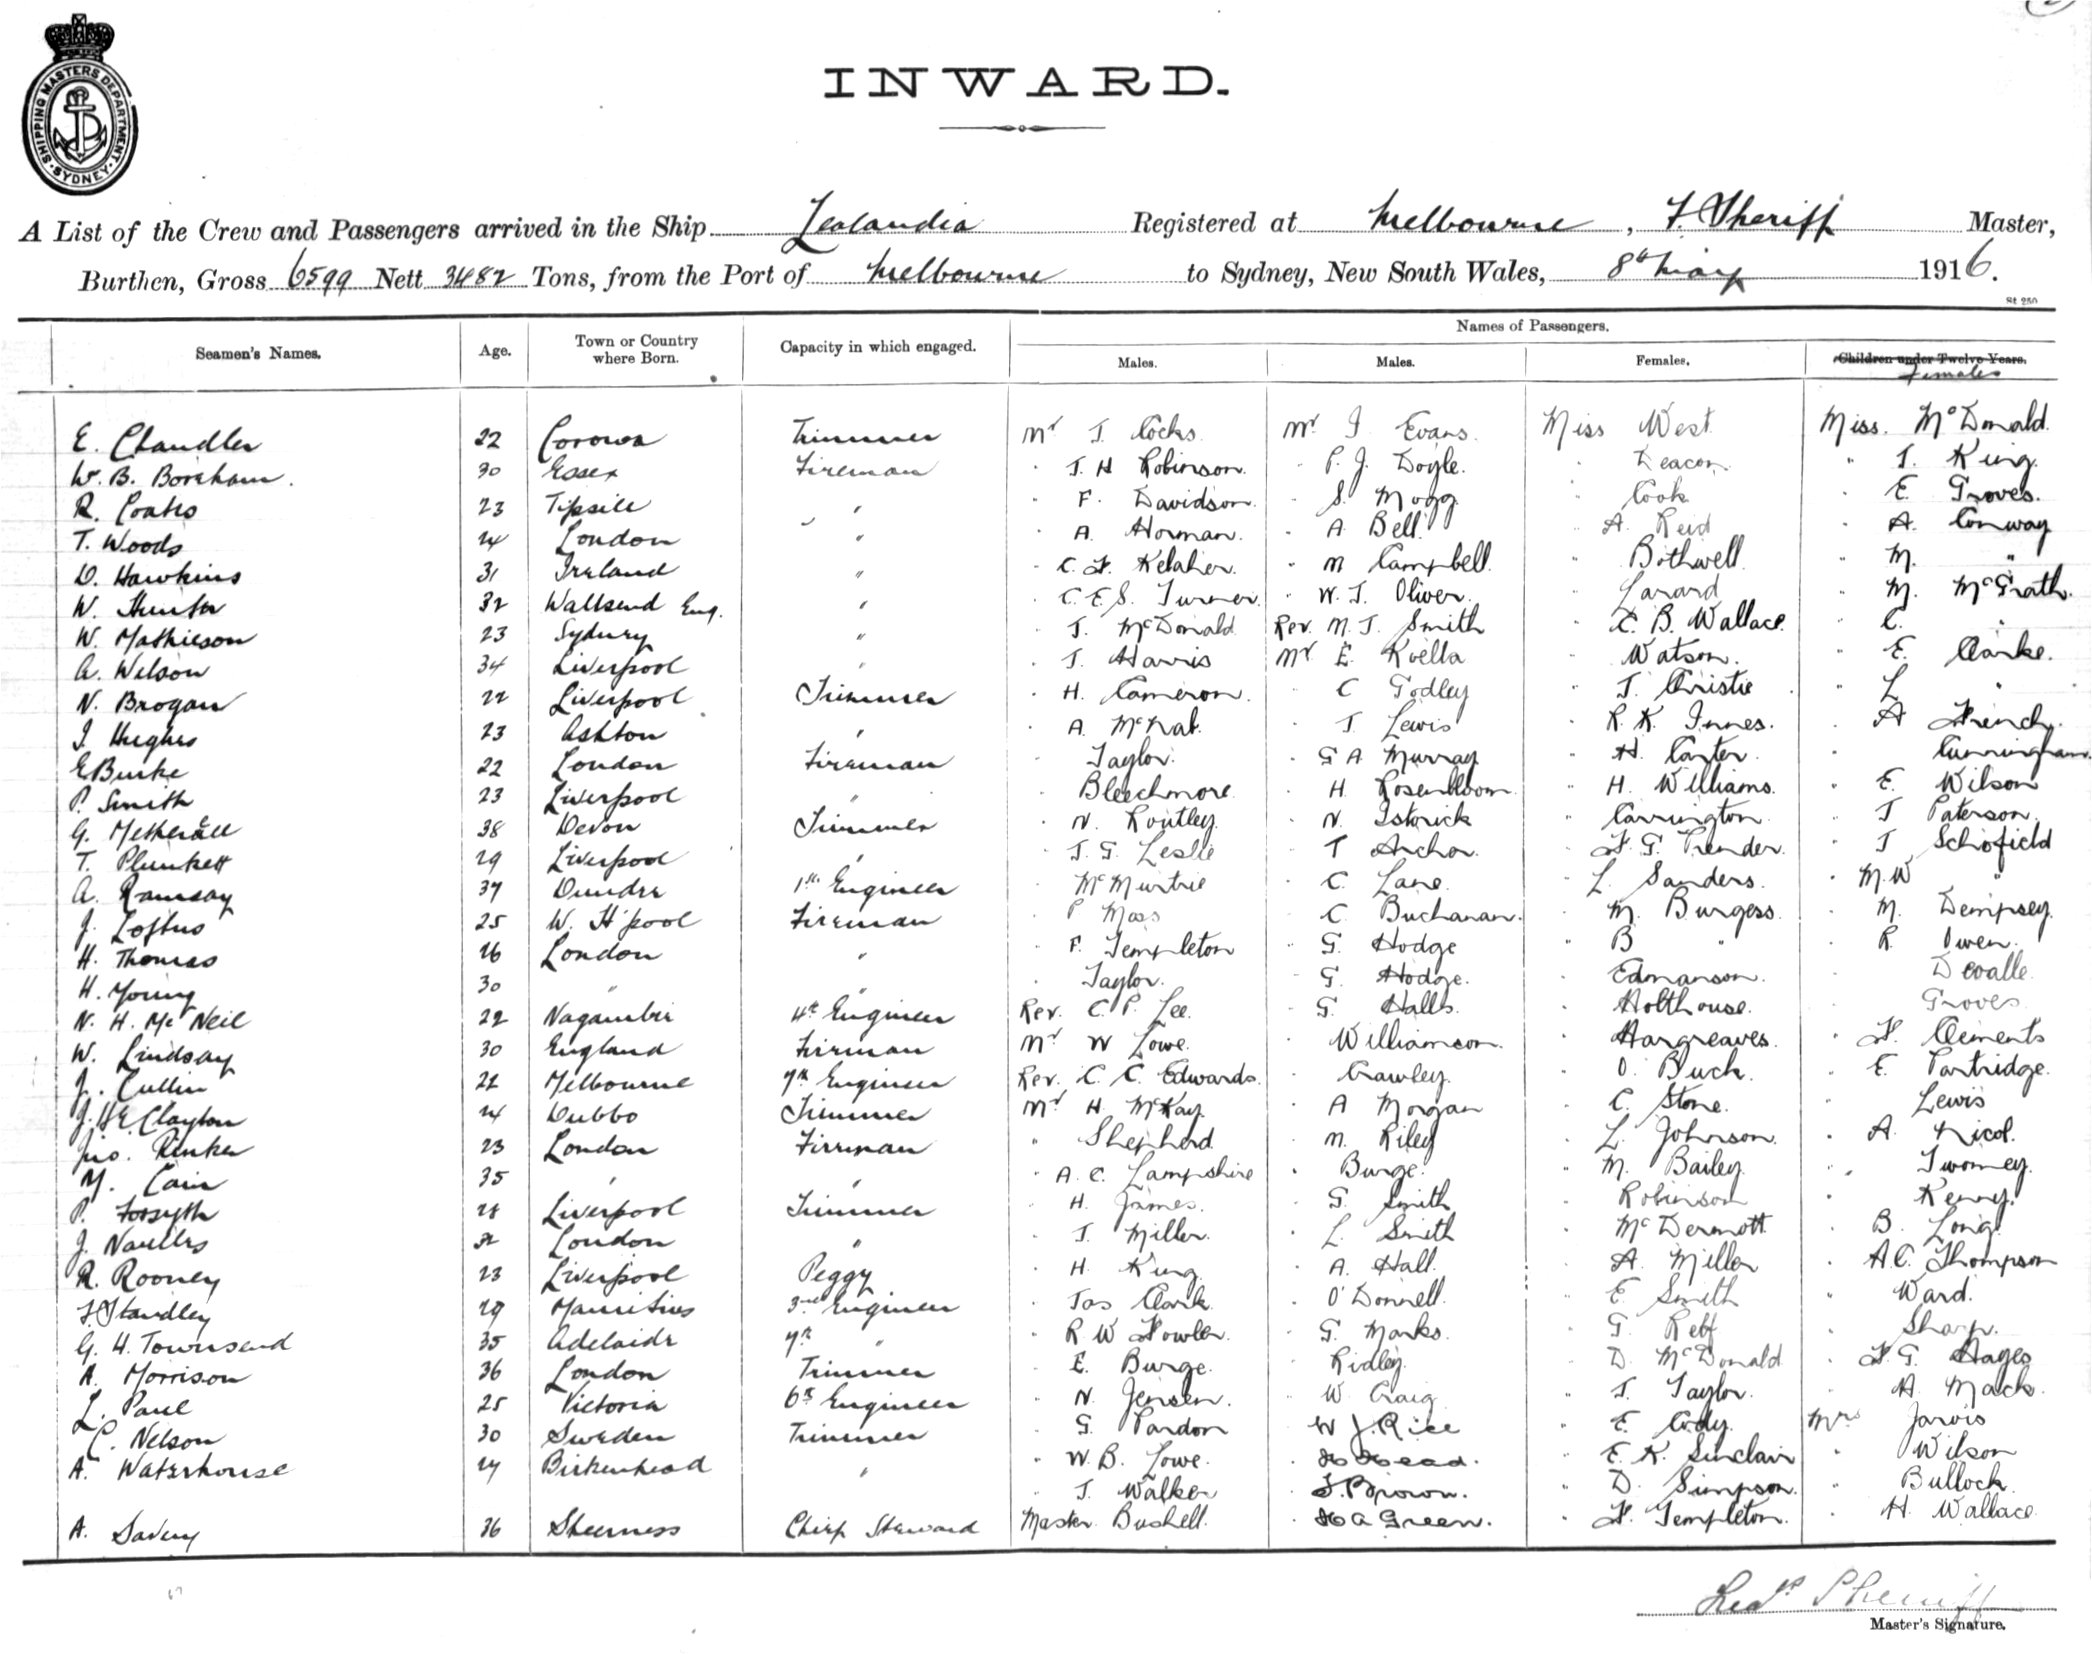 SHIPPING MASTERS DEPARTMENT · SYDNEY ·
INWARD.
A List of the Crew and Passengers arrived in the Ship Zealandia Registered at Melbourne, F. Sheriff Master,
Burthen, Gross 6599 Nett 3482 Tons, from the Port of Melbourne to Sydney, New South Wales, 8th May 1916.
St 250
Names of Passengers.
Seamen's Names. Age. Town or Country where Born. Capacity in which engaged. Males. Males. Females. Children under Twelve Years.
Females
E. Chandler 22 Corowa Trimmer Mr J. Cocks Mr J. Evans. Miss West Miss. McDonald.
W. B. Boreham. 30 Essex Fireman " J. H Robinson. " P. J. Doyle. " Deacon " J. King.
R. Coates 23 " " F. Davidson. " S. Mogg " Cook " E Groves.
T. Woods 24 London " " A. Horman. " A Bell " A. Reid " A. Conway
D. Hawkins 31 Ireland " " C. F. Kelaher. " M Campbell. " Bothwell " M. "
W. Hunter 32 Wallsend Eng. " " C. E. S. Turner. " W. J. Oliver. " Larard " M. McGrath.
W. Mathieson 23 Sydney " " J. McDonald Rev. M. J. Smith " C. B. Wallace. " C. "
A. Wilson 34 Liverpool " " J. Harris Mr E. Koella " Watson. " E. Clarke.
N. Brogan 22 Liverpool Trimmer " H. Cameron. " C Godley " J. Christie " L "
J. Hughes 23 Ashton " " A. McNab. " J Lewis " R. K. Innes. " A French.
E Burke 22 London Fireman " Taylor. " G A Murray " H. Carter. " Cunningham
P. Smith 23 Liverpool " " Bleechmore " H. Rosenbloom " H. Williams. " E. Wilson
G. Metherall 38 Devon Trimmer " N. Routley. " N. Istorick " Carrington. " J Paterson.
T. Plunkett 29 Liverpool " " J. G. Leslie " T Archer. " F. G. Prender. " J Schofield
A. Ramsay 37 Dundee 1st Engineer " McMurtrie " C. Lane. " L. Sanders. " M.W "
J. Loftus 25 W. H'pool Fireman " P Moss " C. Buchanan. " M. Burgess. " M. Dempsey.
H. Thomas 26 London " " F. Templeton " G. Hodge " B " " R. Owen.
H. Young 30 " " " Taylor. " G. Hodge. " Edmanson. " Devalle
N. H. McNeil 22 Nagambie 4th Engineer Rev. C. P. Lee. G. Halls. " Holthouse. Groves
W. Lindsay 30 England Fireman Mr W Lowe. " Williamson. " Hargreaves. " F. Clements
J. Cullin 22 Melbourne 7th Engineer Rev. C. C. Edwards. " Crawley. " O. Buck. " E. Partridge.
J. H E. Clayton 24 Dubbo Trimmer Mr H. McKay " A Morgan " C. Stone. " Lewis
Jno. Rinker 23 London Fireman " Shepherd " M. Riley " L. Johnson. " A. Nicol.
M. Cain 35 " " " A. C. Lampshire " Burge. " M. Bailey. " Twomey.
P. Forsyth 28 Liverpool Trimmer " H. James. " G. Smith " Robinson " Kenny.
J. 32 London " " J. Miller. " L. Smith " McDermott " B. Long.
R. Rooney 23 Liverpool Peggy " H. King " A. Hall. " A. Miller " A.C. Thompson
29 Mauritius 3rd Engineer " Jas Clark. " O'Donnell. " E. Smith " Ward.
G. H. Townsend 35 Adelaide 7th " " R W Fowler. " G. Marks. " G. " Sharp.
A. Morrison 36 London Trimmer " E. Burge. " Ridley. " D McDonald " F. G. Hages
L. Paul 25 Victoria 6th Engineer " N. Jensen. " W. Craig " J. Taylor. " A. Mack.
C. Nelson 30 Sweden Trimmer " G. Pardon W J. Rice " E. Cody. Mrs Jarvis
A. Waterhouse 27 Birkenhead " " W. B. Lowe. H Head. " E. K. Sinclair " Wilson
" J. Walker J. Brown. " D. Simpson. " Bullock.
A. Savery 36 Sheerness Chief Steward Master Bushell. H A Green. " F. Templeton. " H. Wallace
Fredk Sheriff
Master's Signature.